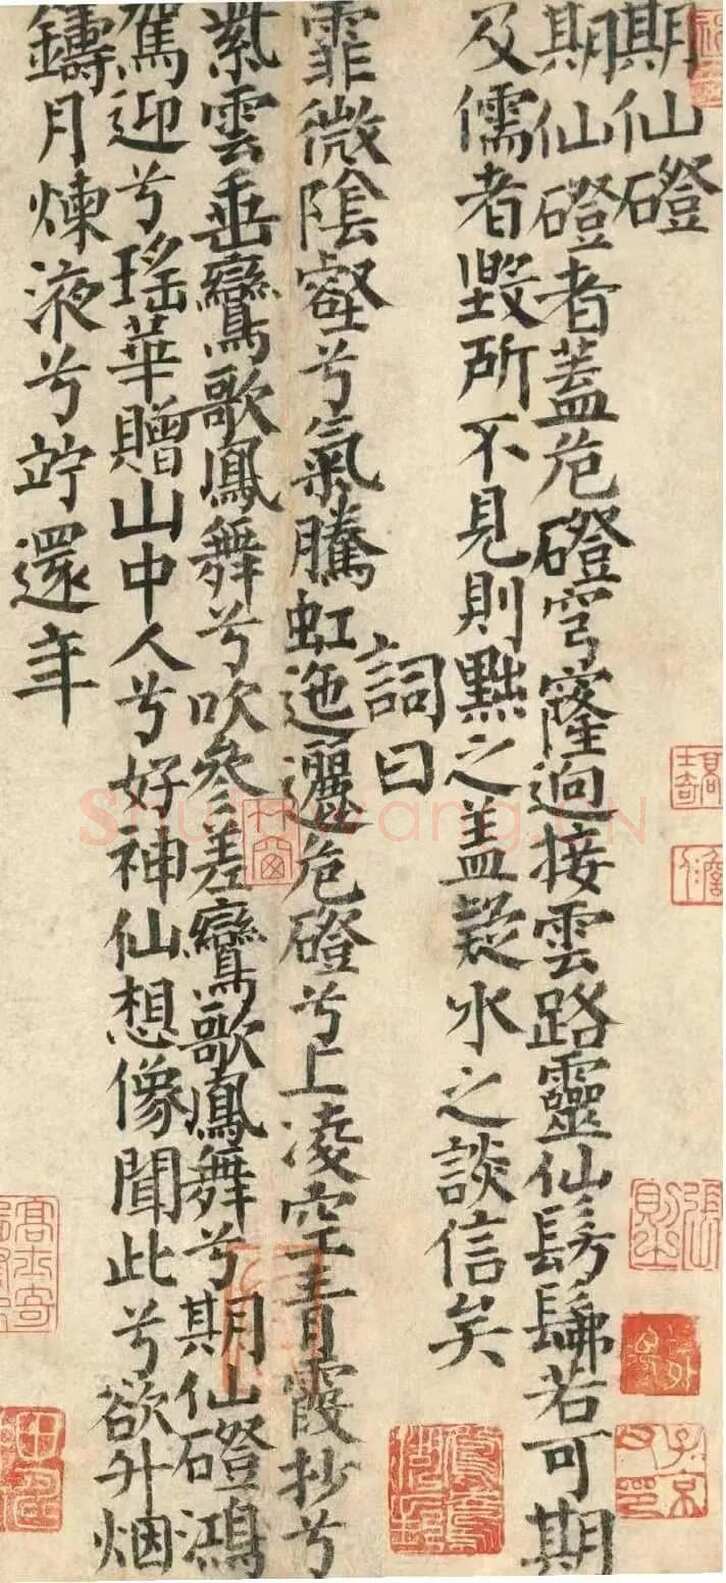 期仙磴
期仙磴者蓋危磴穹窿迥接雲路靈仙髣髴若可期
及儒者毀所不見則黜之蓋疑水之談信矣
詞曰
霏微陰壑兮氣騰虹迤邐危磴兮上凌空青霞抄兮
紫雲垂鸞歌鳳舞兮吹參差鸞歌鳳舞兮期仙磴鴻
駕迎兮瑤華贈山中人兮好神仙想像聞此兮欲升烟
鑄月煉液兮竚還年
Shufawang.CN